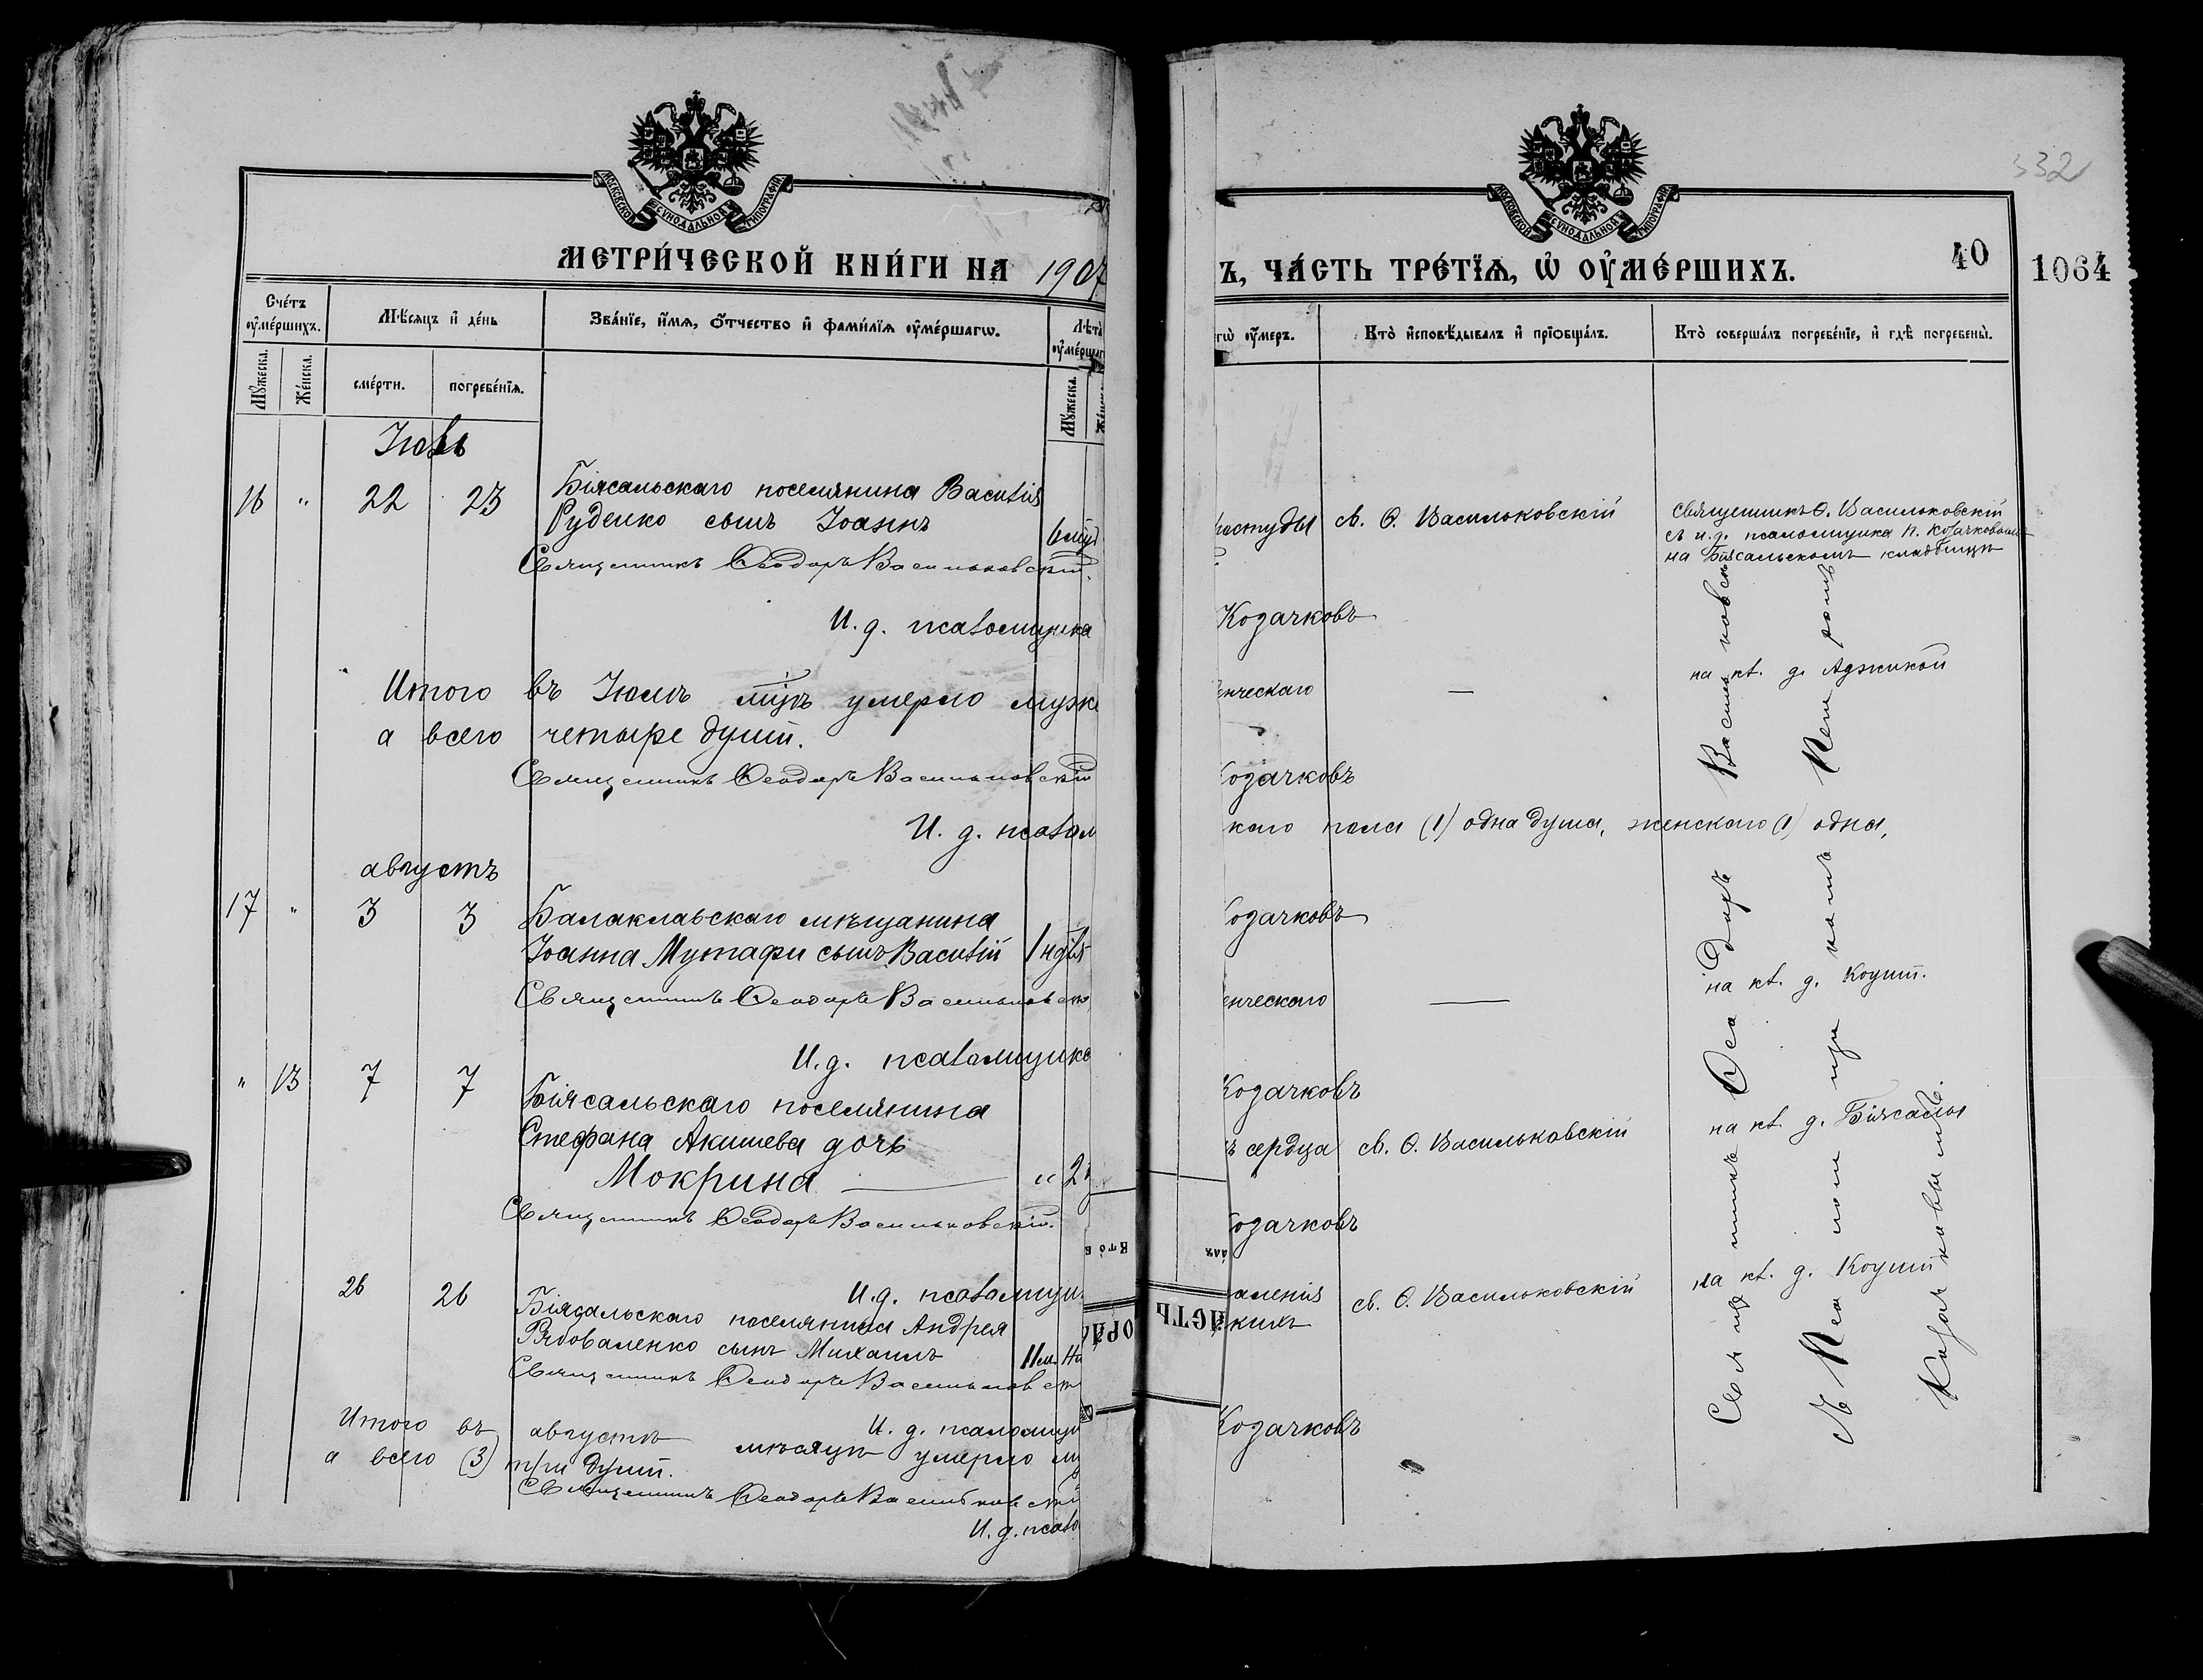 МОСКОВСКОЙ СѴНОДАЛЬНОЙ ТИПОГРАФІИ
МЕТРИ́ЧЕСКОЙ КНИ́ГИ НА 1907
Счéтъ оу҆мéршихъ.
Мѣ́сяцъ и҆ дéнь
Звáнїе, и҆́мѧ, ѻ҆́тчество и҆ фамилїѧ оу҆мéршагѡ.
Лѣ́тъ
Мꙋ́жеска.
Жéнска.
смéрти.
погребéнїѧ.
Мꙋ́жеска.
Іюль
16 " 22 23 Біясальскаго поселянина Василія
Руденко сынъ Іоаннъ
Священникъ Ѳеодоръ Васильковскій.
И. д. псаломщика
Итого въ Іюлѣ мцѣ умерло муж
а всего четыре души.
Священникъ Ѳеодоръ Васильковскій
И. д. псалом
августъ
17 " 3 3 Балаклавскаго мѣщанина
Іоанна Мутафи сынъ Василій
Священникъ Ѳеодоръ Васильковск
И. д. псаломщика
" 13 7 7 Біясальскаго поселянина
Стефана Акишева дочь
Мокрина " 2
Священникъ Ѳеодоръ Васильковскій.
И. д. псаломщи
26 26 Біясальскаго поселянина Андрея
Рябоваленко сынъ Михаилъ 11 м.
Священникъ Ѳеодоръ Васильковск
И. д. псаломщи
Итого въ августѣ мѣсяцѣ умерло му
а всего (3) три души.
Священникъ Ѳеодоръ Васильковскій
И. д. псало
332
МОСКОВСКОЙ СѴНОДАЛЬНОЙ ТИПОГРАФІИ
Ъ, ЧА́СТЬ ТРЕ́ТЇѦ, Ѡ҆ ОУ҆МЕ́РШИХЪ.
40
1064
гѡ оу҆́меръ.
Ктò и҆сповѣ́дывалъ и҆ прїобщáлъ.
Ктò совершáлъ погребéнїе, и҆ гдѣ̀ погребены̀.
простуды св. Ѳ. Васильковскій
Священникъ Ѳ. Васильковскій
съ и. д. псаломщика П. Козачковымъ
на Біясальскомъ кладбищѣ
Козачковъ
нческаго —
на кл. д. Аджикой
Козачковъ
каго пола (1) одна душа, женскаго (1) одна,
Козачковъ
нческаго —
на кл. д. Коуши.
Козачковъ
ъ сердца св. Ѳ. Васильковскій
на кл. д. Біясалы
Козачковъ
аленія
кихъ
св. Ѳ. Васильковскій
на кл. д. Коуши
Козачковъ
Священникъ Ѳеодоръ Васильковскій
Козачковымъ